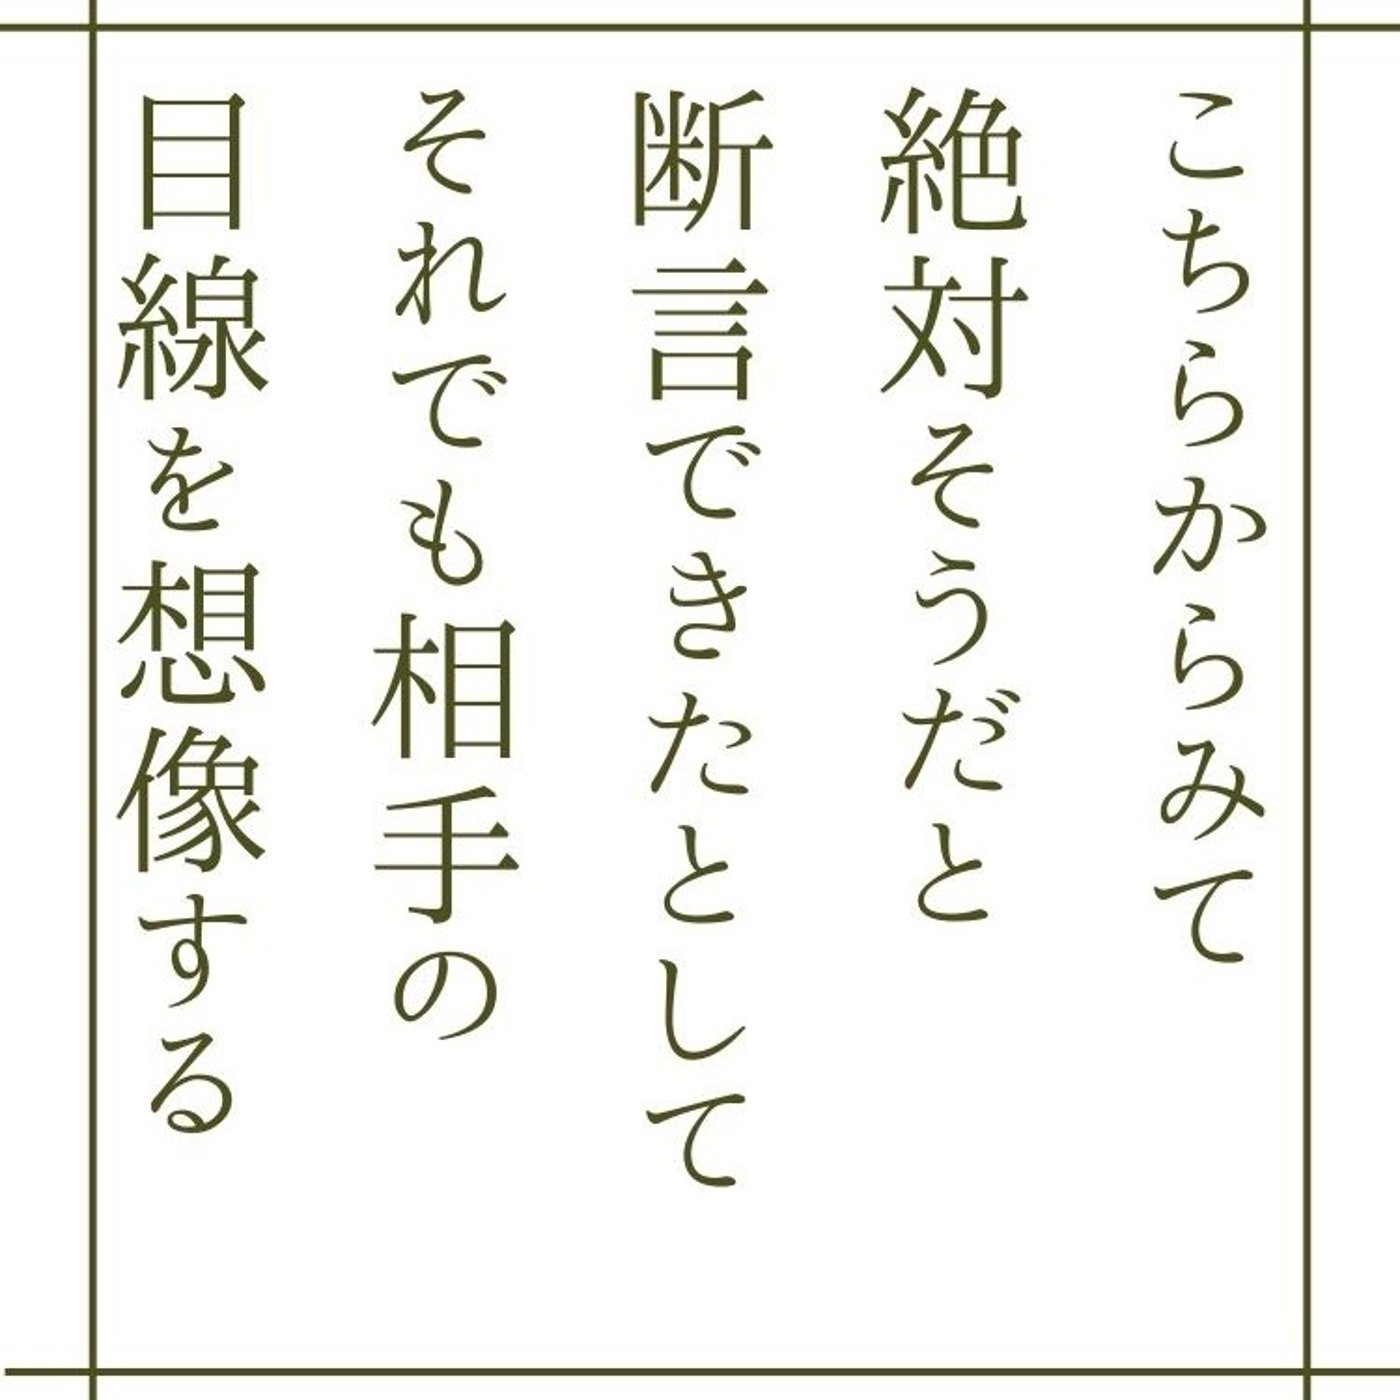 こちらからみて
絶対そうだと
断言できたとして
それでも相手の
目線を想像する